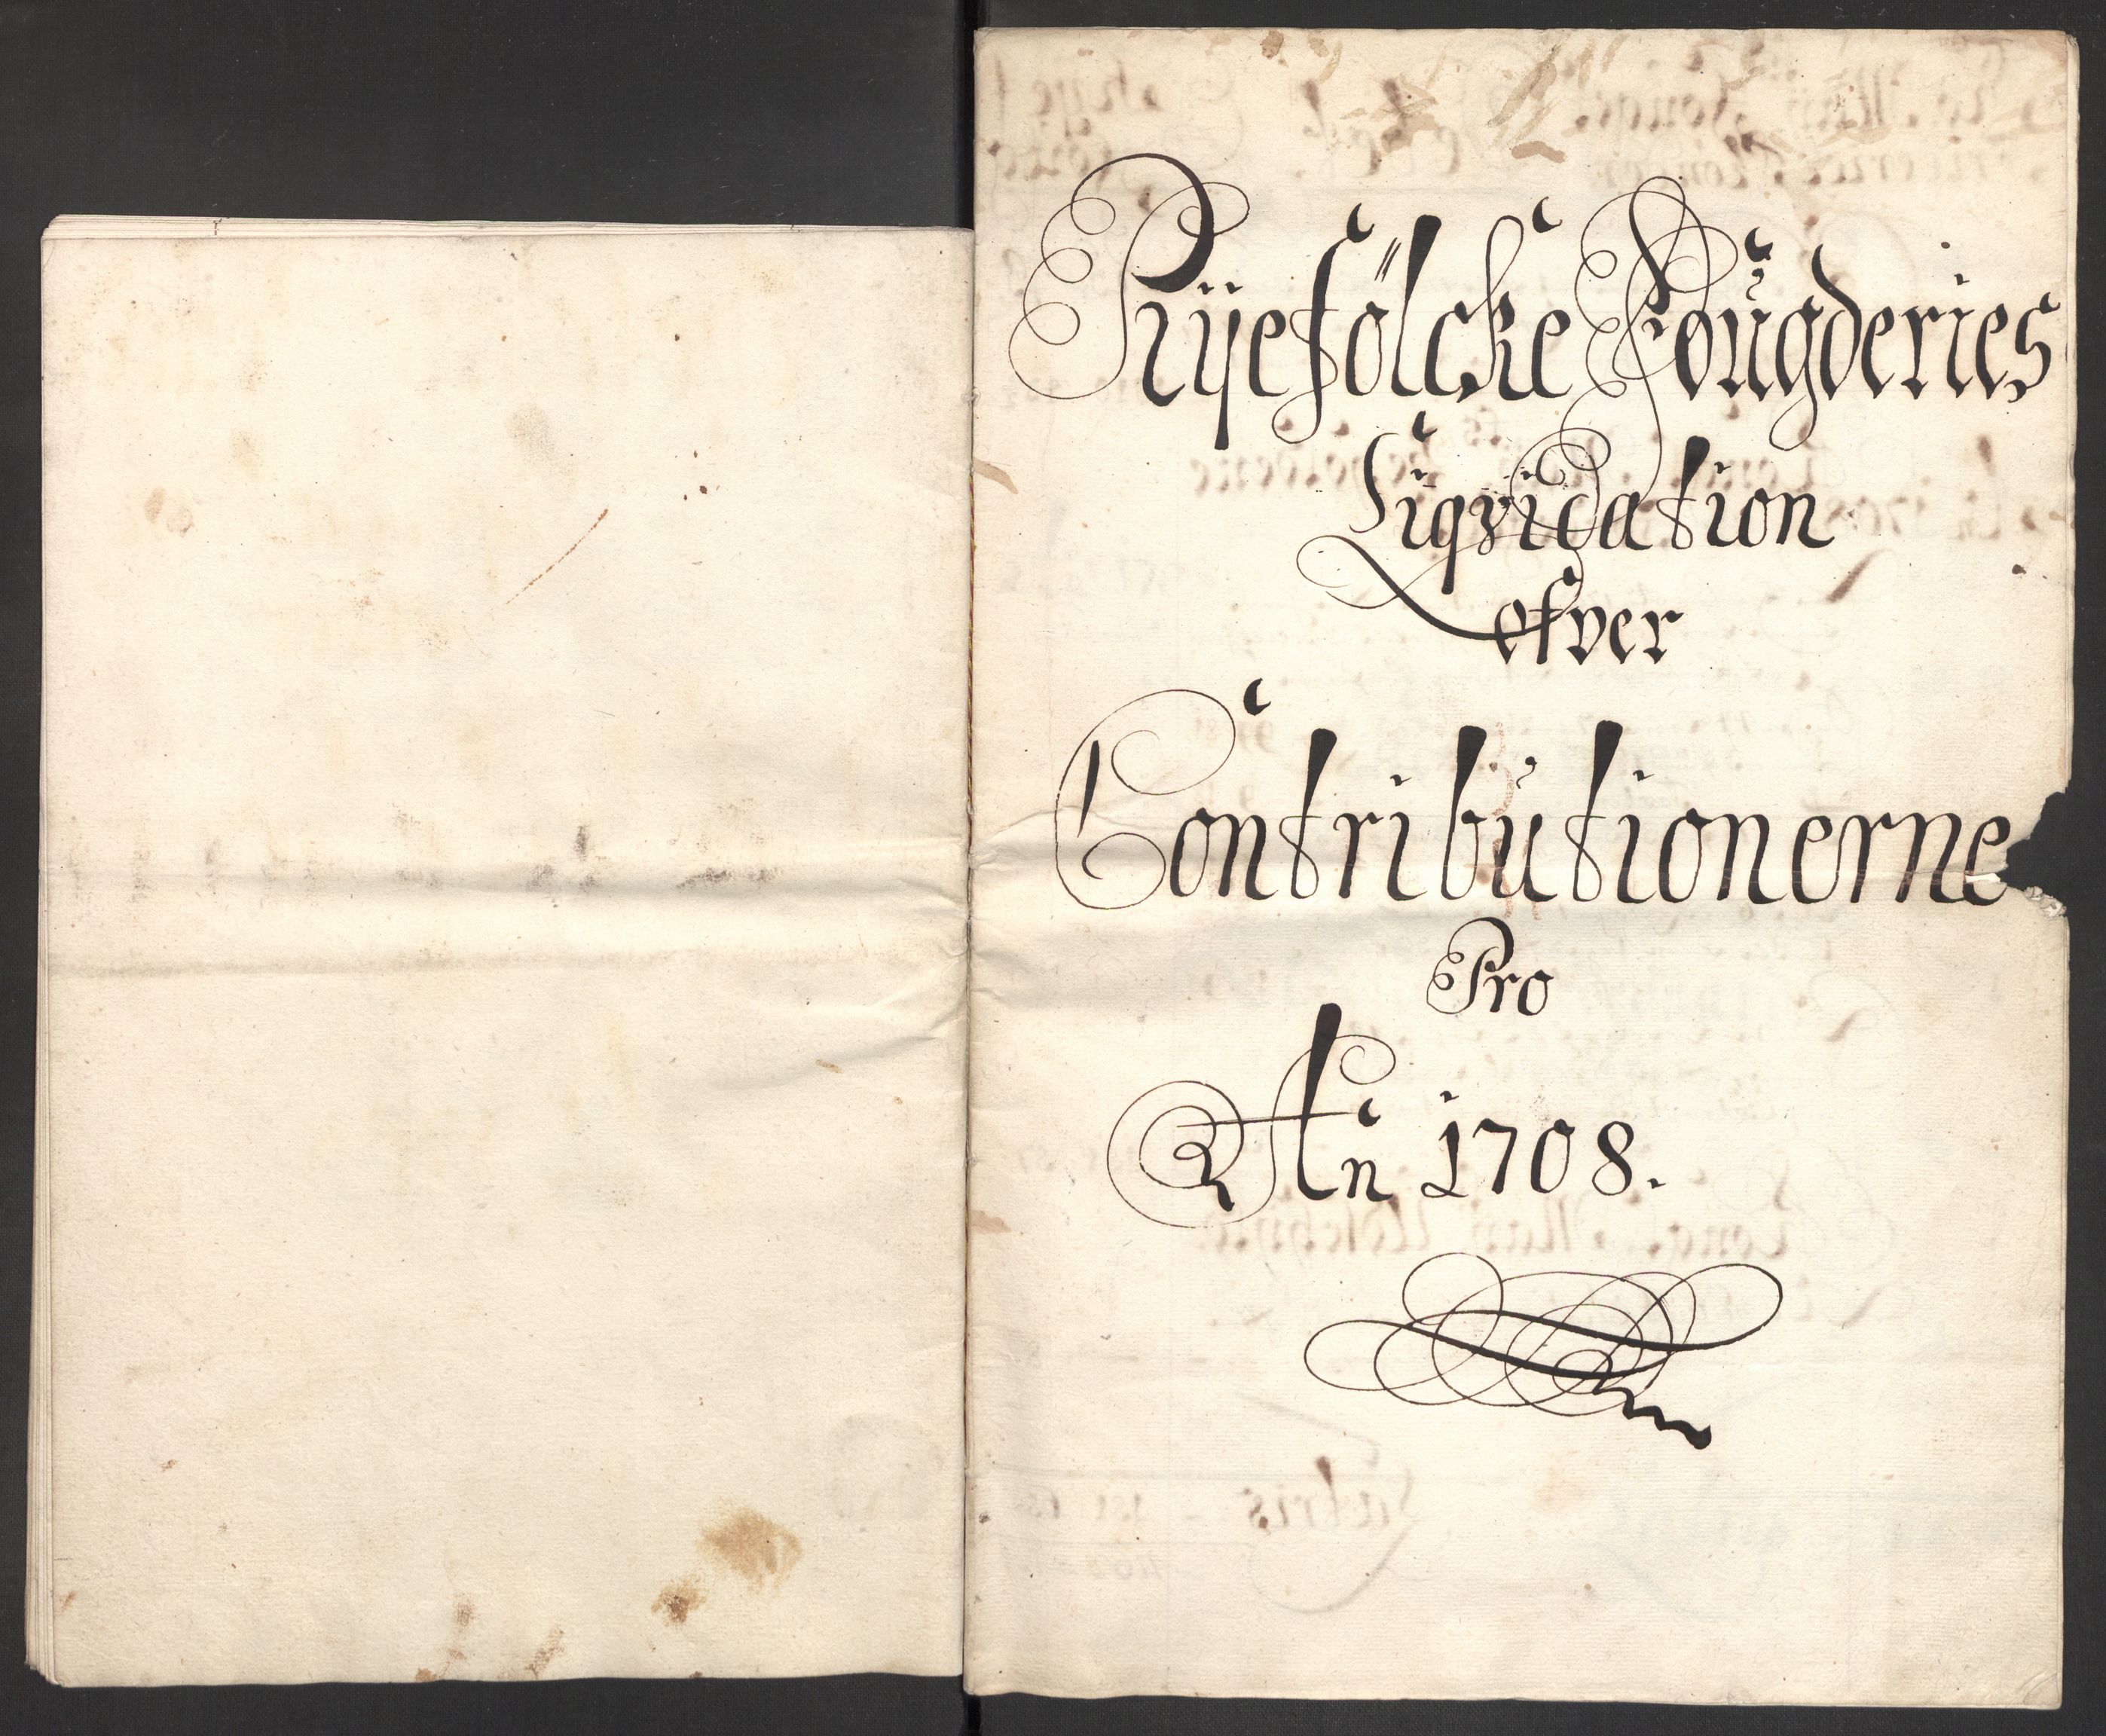 Rÿefölcke Fougderies
Liqvidation
ofver
Contributionerne
Pro
An 1708.